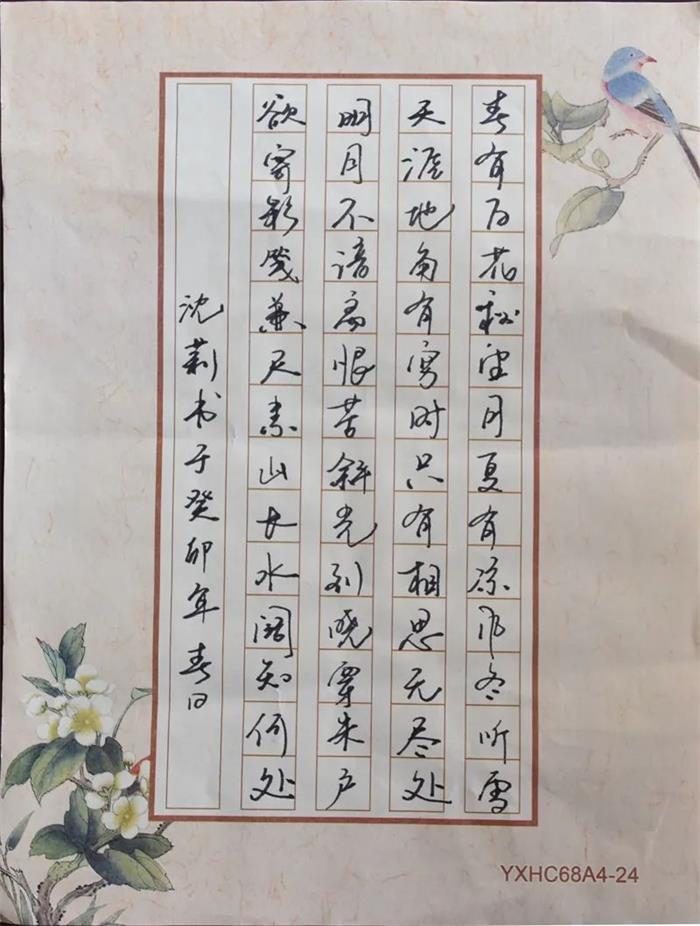 春有百花秋望月夏有凉风冬听雪
天涯地角有穷时只有相思无尽处
明月不谙离恨苦斜光到晓穿朱户
欲寄彩笺兼尺素山长水阔知何处
沈莉书于癸卯年春日
YXHC68A4-24